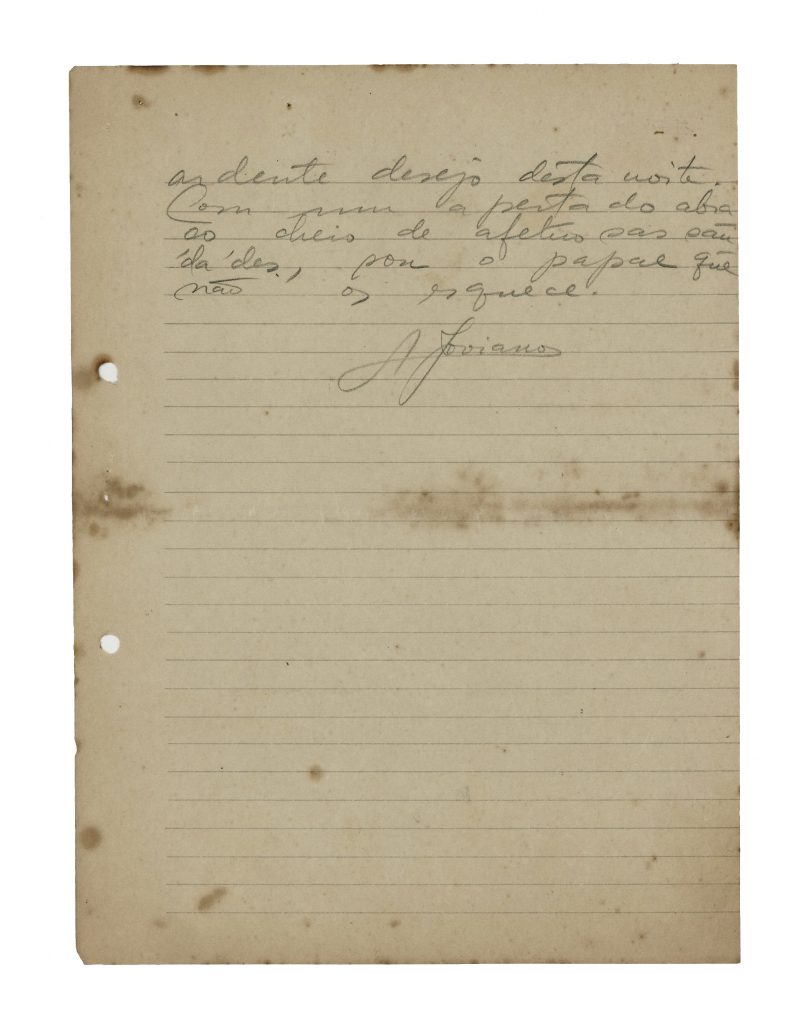 ardente desejo desta noite.
Com um apertado abra
ço cheio de afetuosas sau
dades, sou o papae que
não os esquece.
A Joviano